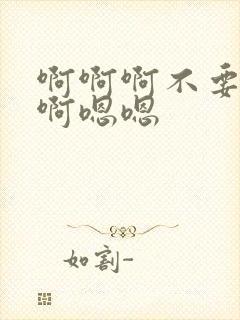 啊啊啊不要
啊嗯嗯
如割-